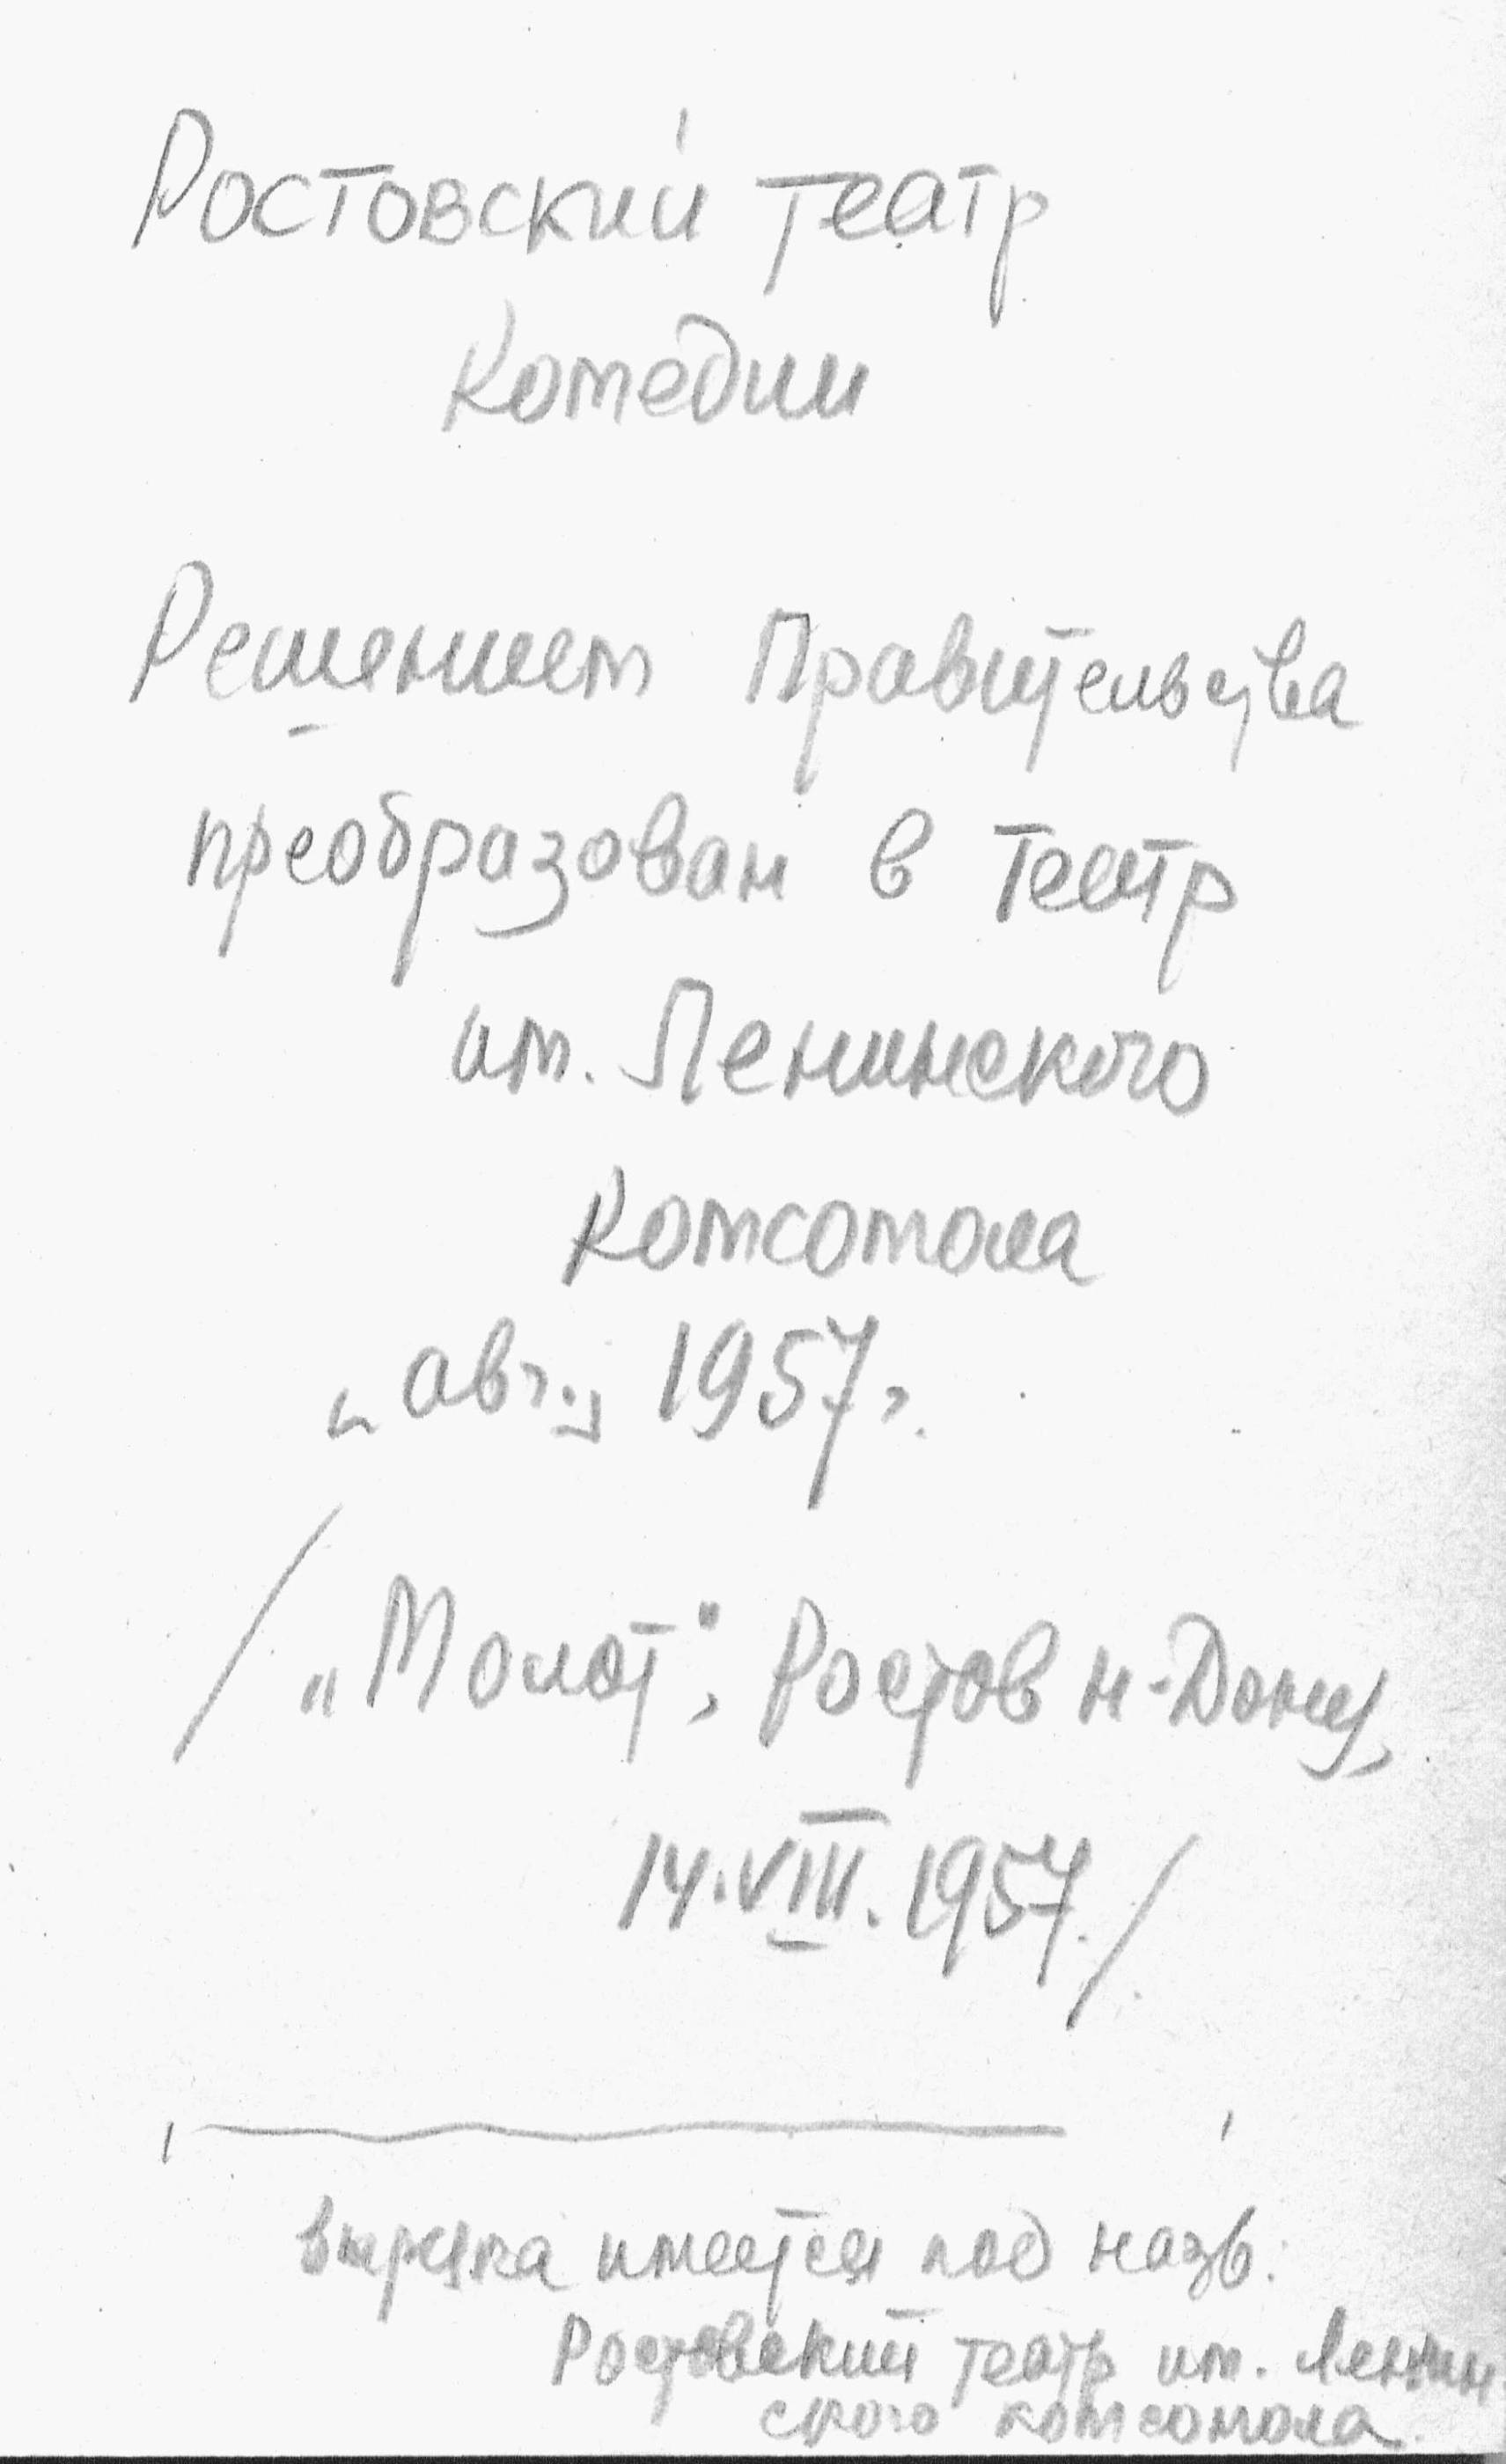 Ростовский театр
Комедии
Решением Правительства
преобразован в театр
им. Ленинского
Комсомола
"авг." 1957 г.
/"Молот", Ростов н-Дону,
14.VIII.1957./
вырезка имеется под назв.
Ростовский театр им. Ленин-
ского комсомола.